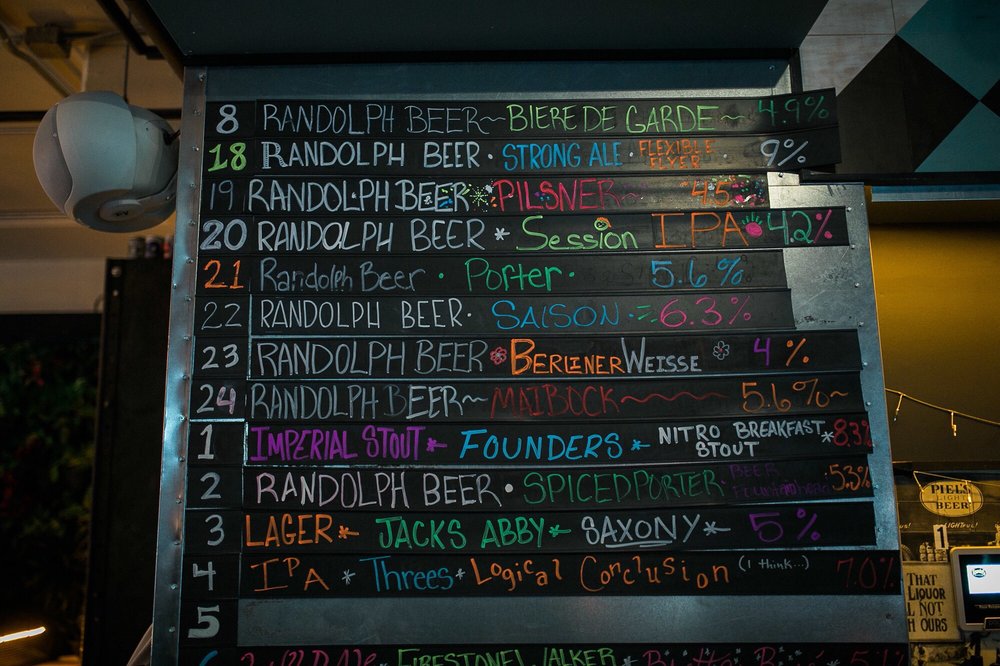 8 RANDOLPH BEER~ BIERE DE GARDE~ 4.9%
18 RANDOLPH BEER · STRONG ALE · FLEXIBLE FLYER 9%
19 RANDOLPH BEER PILSNER 4.5
20 RANDOLPH BEER * Session IPA 4.2%
21 Randolph Beer · Porter · 5.6%
22 RANDOLPH BEER · SAISON 6.3%
23 RANDOLPH BEER BERLINER WEISSE 4%
24 RANDOLPH BEER~ MAIBOCK 5.6%~
1 IMPERIAL STOUT * FOUNDERS * NITRO BREAKFAST STOUT * 8.3%
2 RANDOLPH BEER · SPICED PORTER · BEER 5.3%
3 LAGER * JACKS ABBY * SAXONY * 5%
4 IPA * Threes * Logical Conclusion (I think...) 7.0%
5
FIRESTONE WALKER
PIEL'S LIGHT BEER
THAT LIQUOR